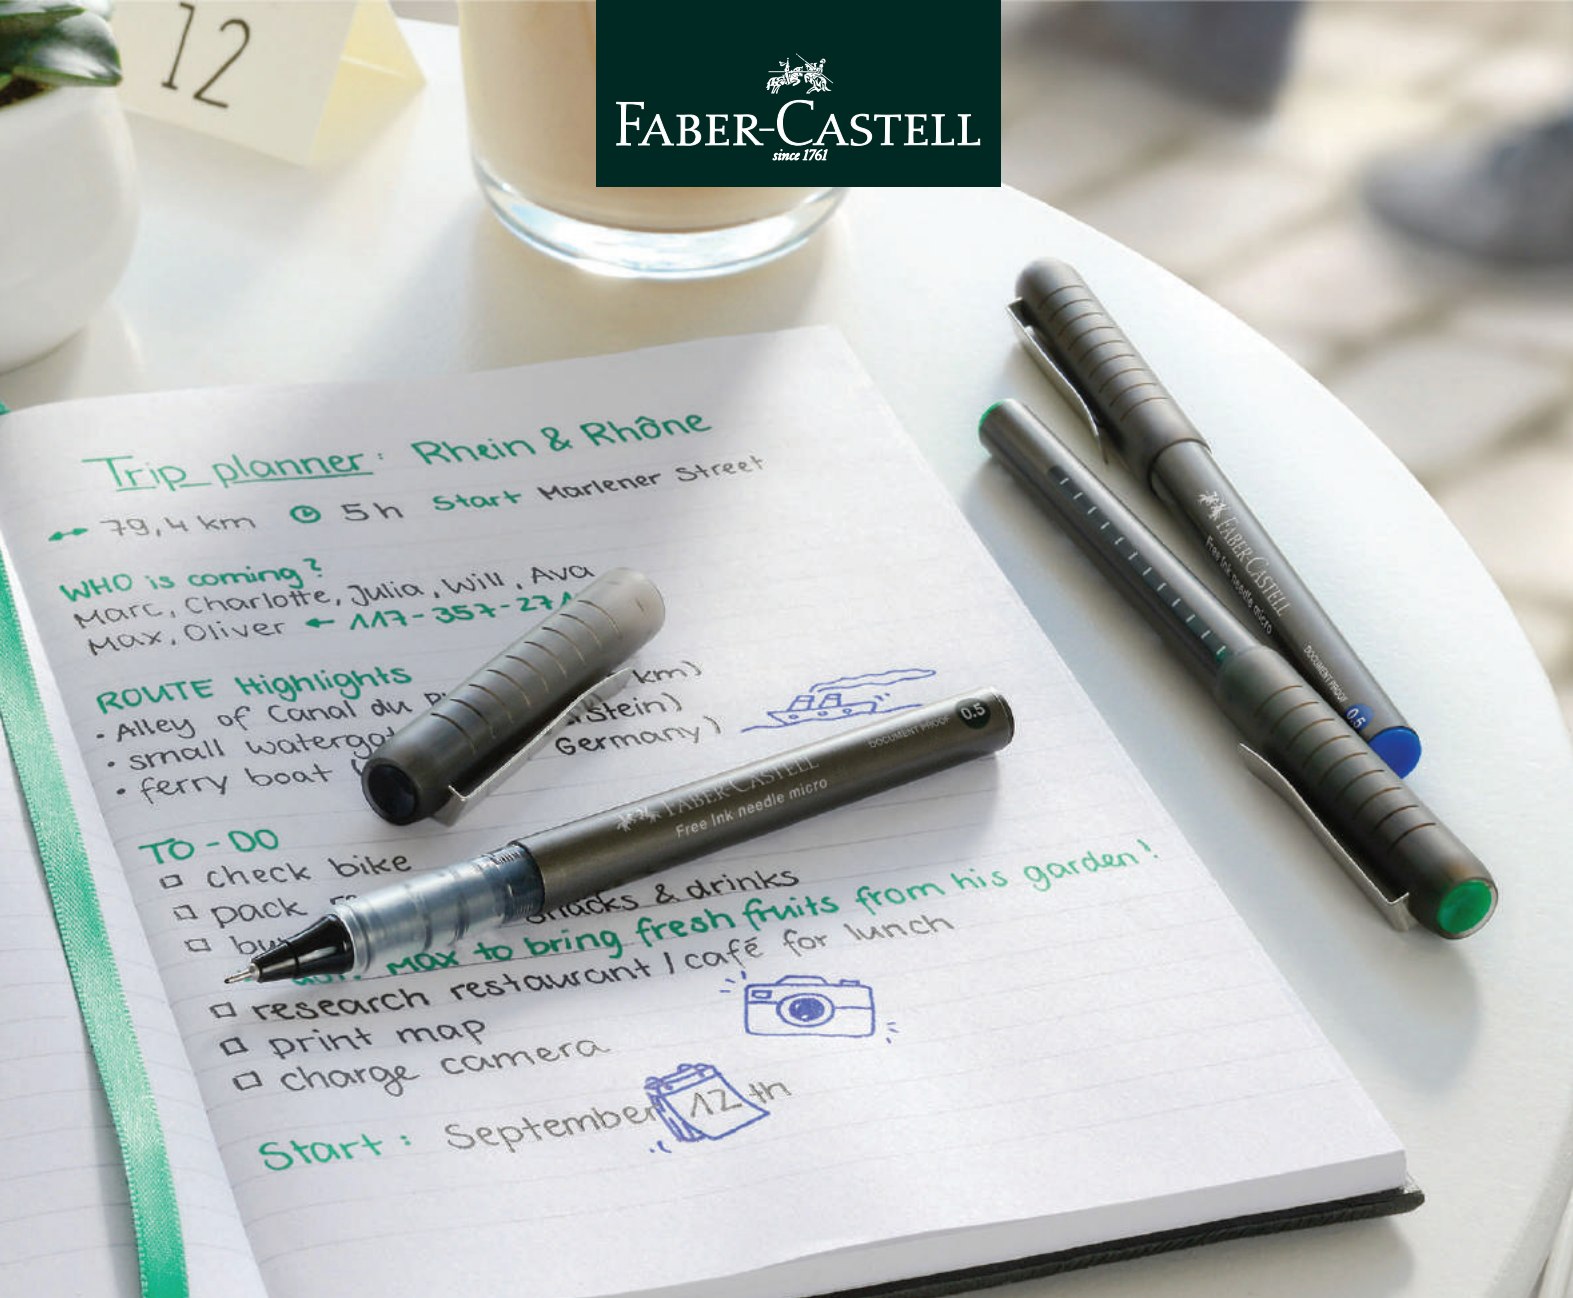 12
FABER-CASTELL
since 1761
Trip planner: Rhein & Rhône
79,4 km 5h Start Marlener Street
WHO is coming?
Marc, Charlotte, Julia, Will, Ava
Max, Oliver ← 117-357-271
ROUTE Highlights
• Alley of Canal du km)
• small stein)
• ferry boat Germany)
TO-DO
check bike
pack
snacks & drinks
Max to bring fresh fruits from his garden!
research restaurant / café for lunch
print map
charge camera
Start: September 12th
FABER-CASTELL
Free Ink needle micro
DOCUMENT PROOF 0.5
FABER-CASTELL
Free Ink needle micro
DOCUMENT PROOF 0.5